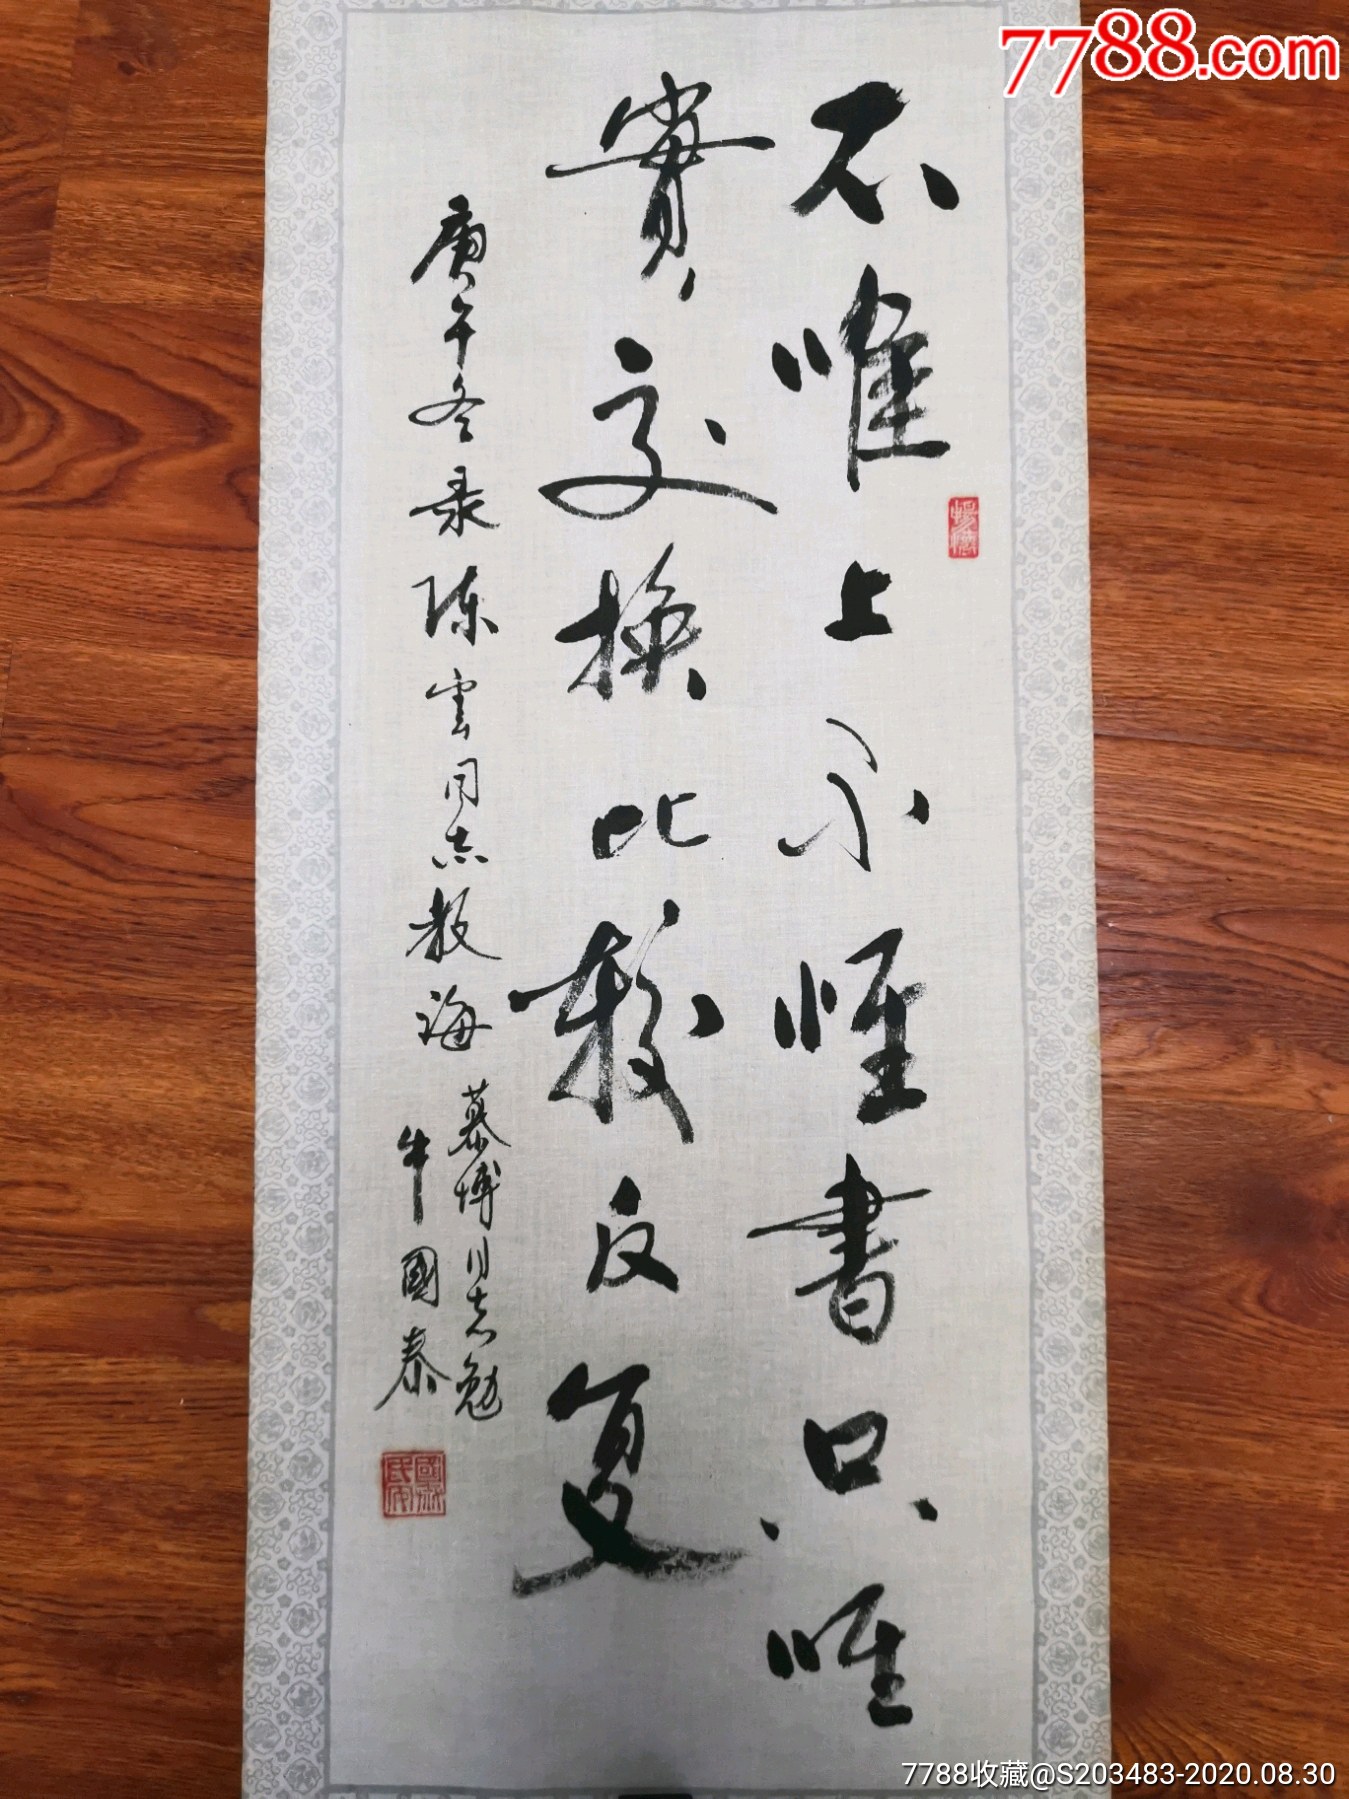 7788.com
不唯上不唯書只唯
實交換比較反复
庚午冬录陈雲同志教诲
慕博同志勉
牛國泰
7788收藏@S203483-2020.08.30